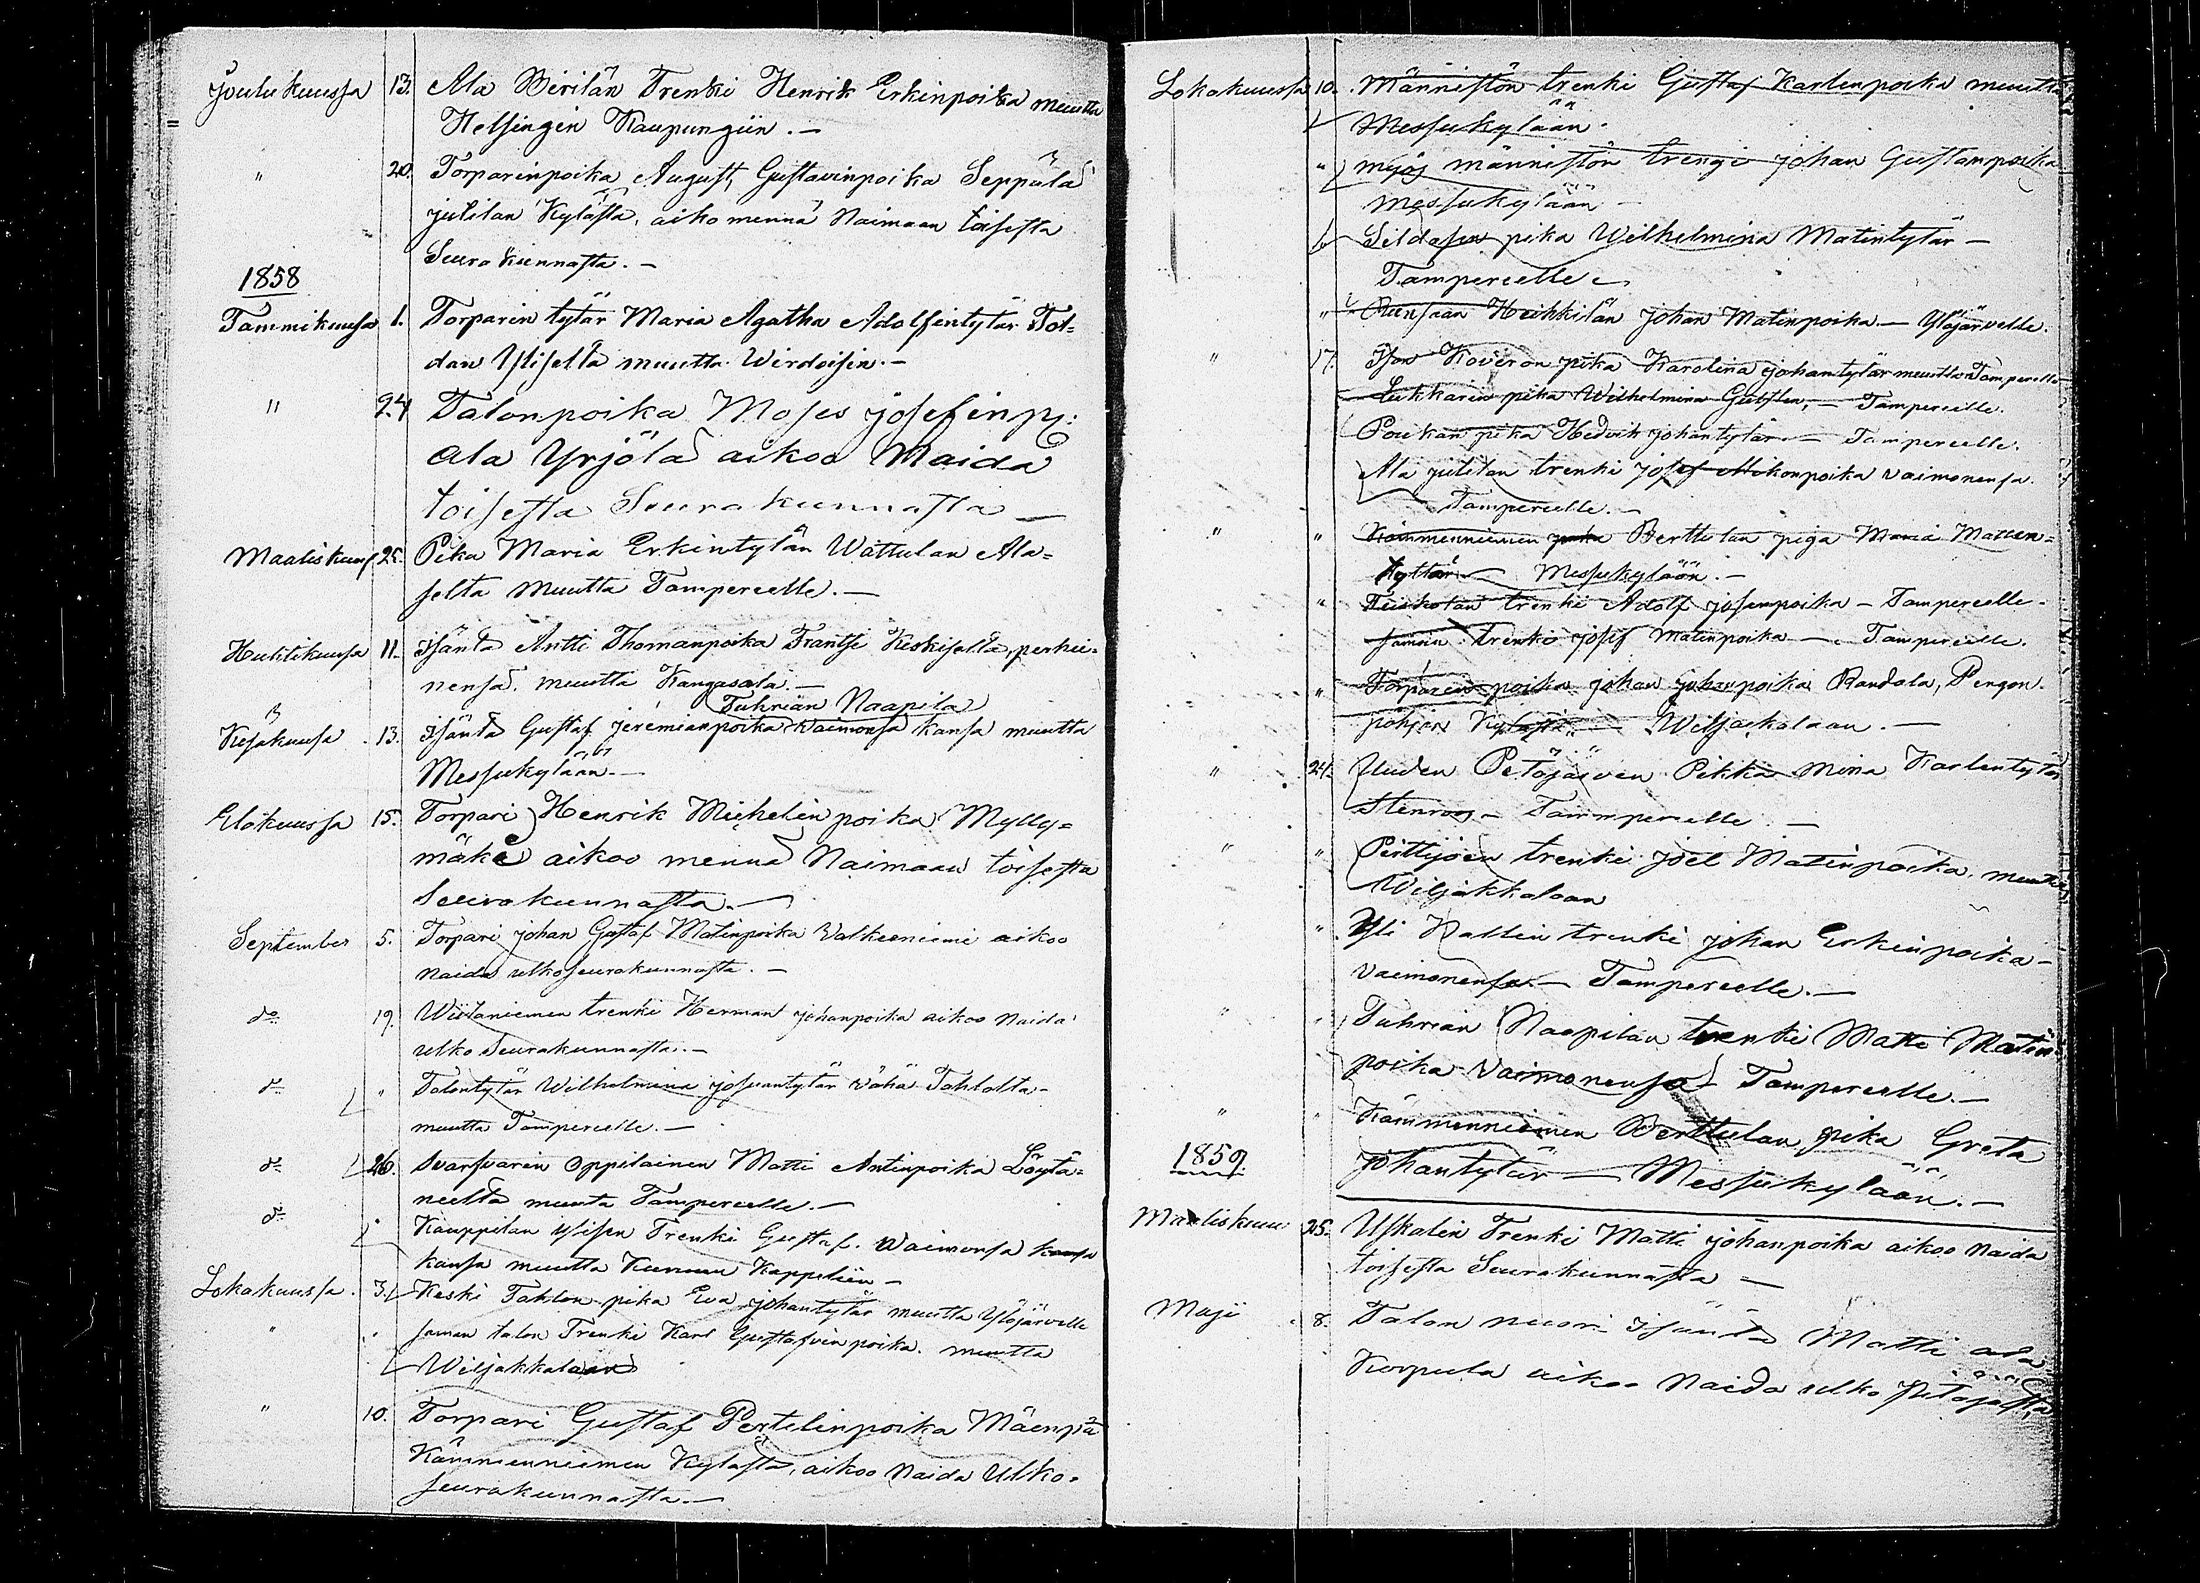 Joulukuussa 13. Ala Wirilän Trenki Henrik Erkinpoika muutta
Helsingin Kaupungiin. —
" 20. Torparinpoika August, Gustavinpoika Seppälä
jutilan Kylästä, aiko mennä Naimaan toisesta
Seurakunnasta. —
1858
Tammikuusa 1. Torparin tytär Maria Agatha Adolfintytär Tot-
dan Ylisellä muutta Wirdoisin. —
" 24 Talonpoika Moses josefinp:
ala Yrjölä aikoo Naida
toisesta Seurakunnasta —
Maaliskuus 25. Pika Maria Erkintytär Wattulan Ala=
selta muutta Tampereelle. —
Huhtikuusa 11. Isäntä Antti Thomanpoika Frantsi Keskiseltä, perhei=
nensä. muutta Kangasala. —
Tuhrian Naapila
Kesäkuusa 13. Isäntä Gustaf jeremianpoika waimonsa kansa muutta
Messukylään. —
Elokuussa 15. Torpari Henrik Michelinpoika Mylly=
mäki aikoo mennä Naimaan toisesta
Seurakunnasta. —
September 5. Torpari johan Gustaf Matinpoika Valkeeniemi aikoo
naida ulkoseurakunnasta. —
do 19. Wiitaniemen trenki Herman johanpoika aikoo Naida
ulko Seurakunnasta. —
do " Talontytär Wilhelmina josuantytär Vähä Tahlolta
muutta Tampereelle. —
do 26. Svarfvarin oppilainen Matti Antinpoika Löytä=
neeltä muuta Tampereelle. —
do " Kauppilan ylisen Trenki Gustaf. waimonsa kansa
kansa muutta Kurun Kappeliin —
Lokakuussa. 3. Keski Tahlon pika Eva johantytär muutta Ylöjärvelle
" " saman talon Trenki Karl Gustafvinpoika. muutta
Wiljakkalaan
" 10. Torpari Gustaf Pertelinpoika Mäenpä
Kämmenniemen Kylästä, aikoo Naida Ulko=
seurakunnasta. —
Lokakuussa 10. Männistön trenki Gustaf Karlenpoika muutta
Messukylään.
" myös männistön trengi johan Gustavinpoika
Messukylään —
pika Wilhelmina Matintytär —
Tampereelle —
" Heikkilän johan Matinpoika — Ylöjärvelle.
" 17. Ison Koveron pika Karolina johantytär muutta Tampereelle
pika Wilhelmina — Tampereelle.
pika Hedvik johantytär — Tampereelle.
Ala jutilan trenki josef Mikonpoika vaimonensa.
Tampereelle. —
" " Kämmenniemen Perttulan piga Maria Matin=
tyttär — Messukylään. —
" trenki Adolf josenpoika — Tampereelle.
trenki josef Matinpoika — Tampereelle.
" Torparin poika johan johanpoika Randala, Pengon
pohjan Kylästä — Wiljackalaan. —
" 24. Uuden Petäjärven Pikka Mina Karlentytär
Stenroos — Tammpereelle. —
" " Perttyjöen trenki joel Matinpoika. muutta
Wiljakkalaan
" Yli trenki johan Erkinpoika —
vaimonensa — Tampereelle. —
" " Tuhrian Naapilan trenki Matti Matin
poika vaimonensa — Tampereelle. —
" " Kämmenniemen Perttulan pika Greta
johantytär — Messukylään. —
1859.
Maaliskuu 25. Uskalin Trenki Matti johanpoika aikoo Naida
toisesta Seurakunnasta —
Maji 8. Talon nuori Isäntä Matti ala
Korpula aikoo Naida ulko pitäjästä